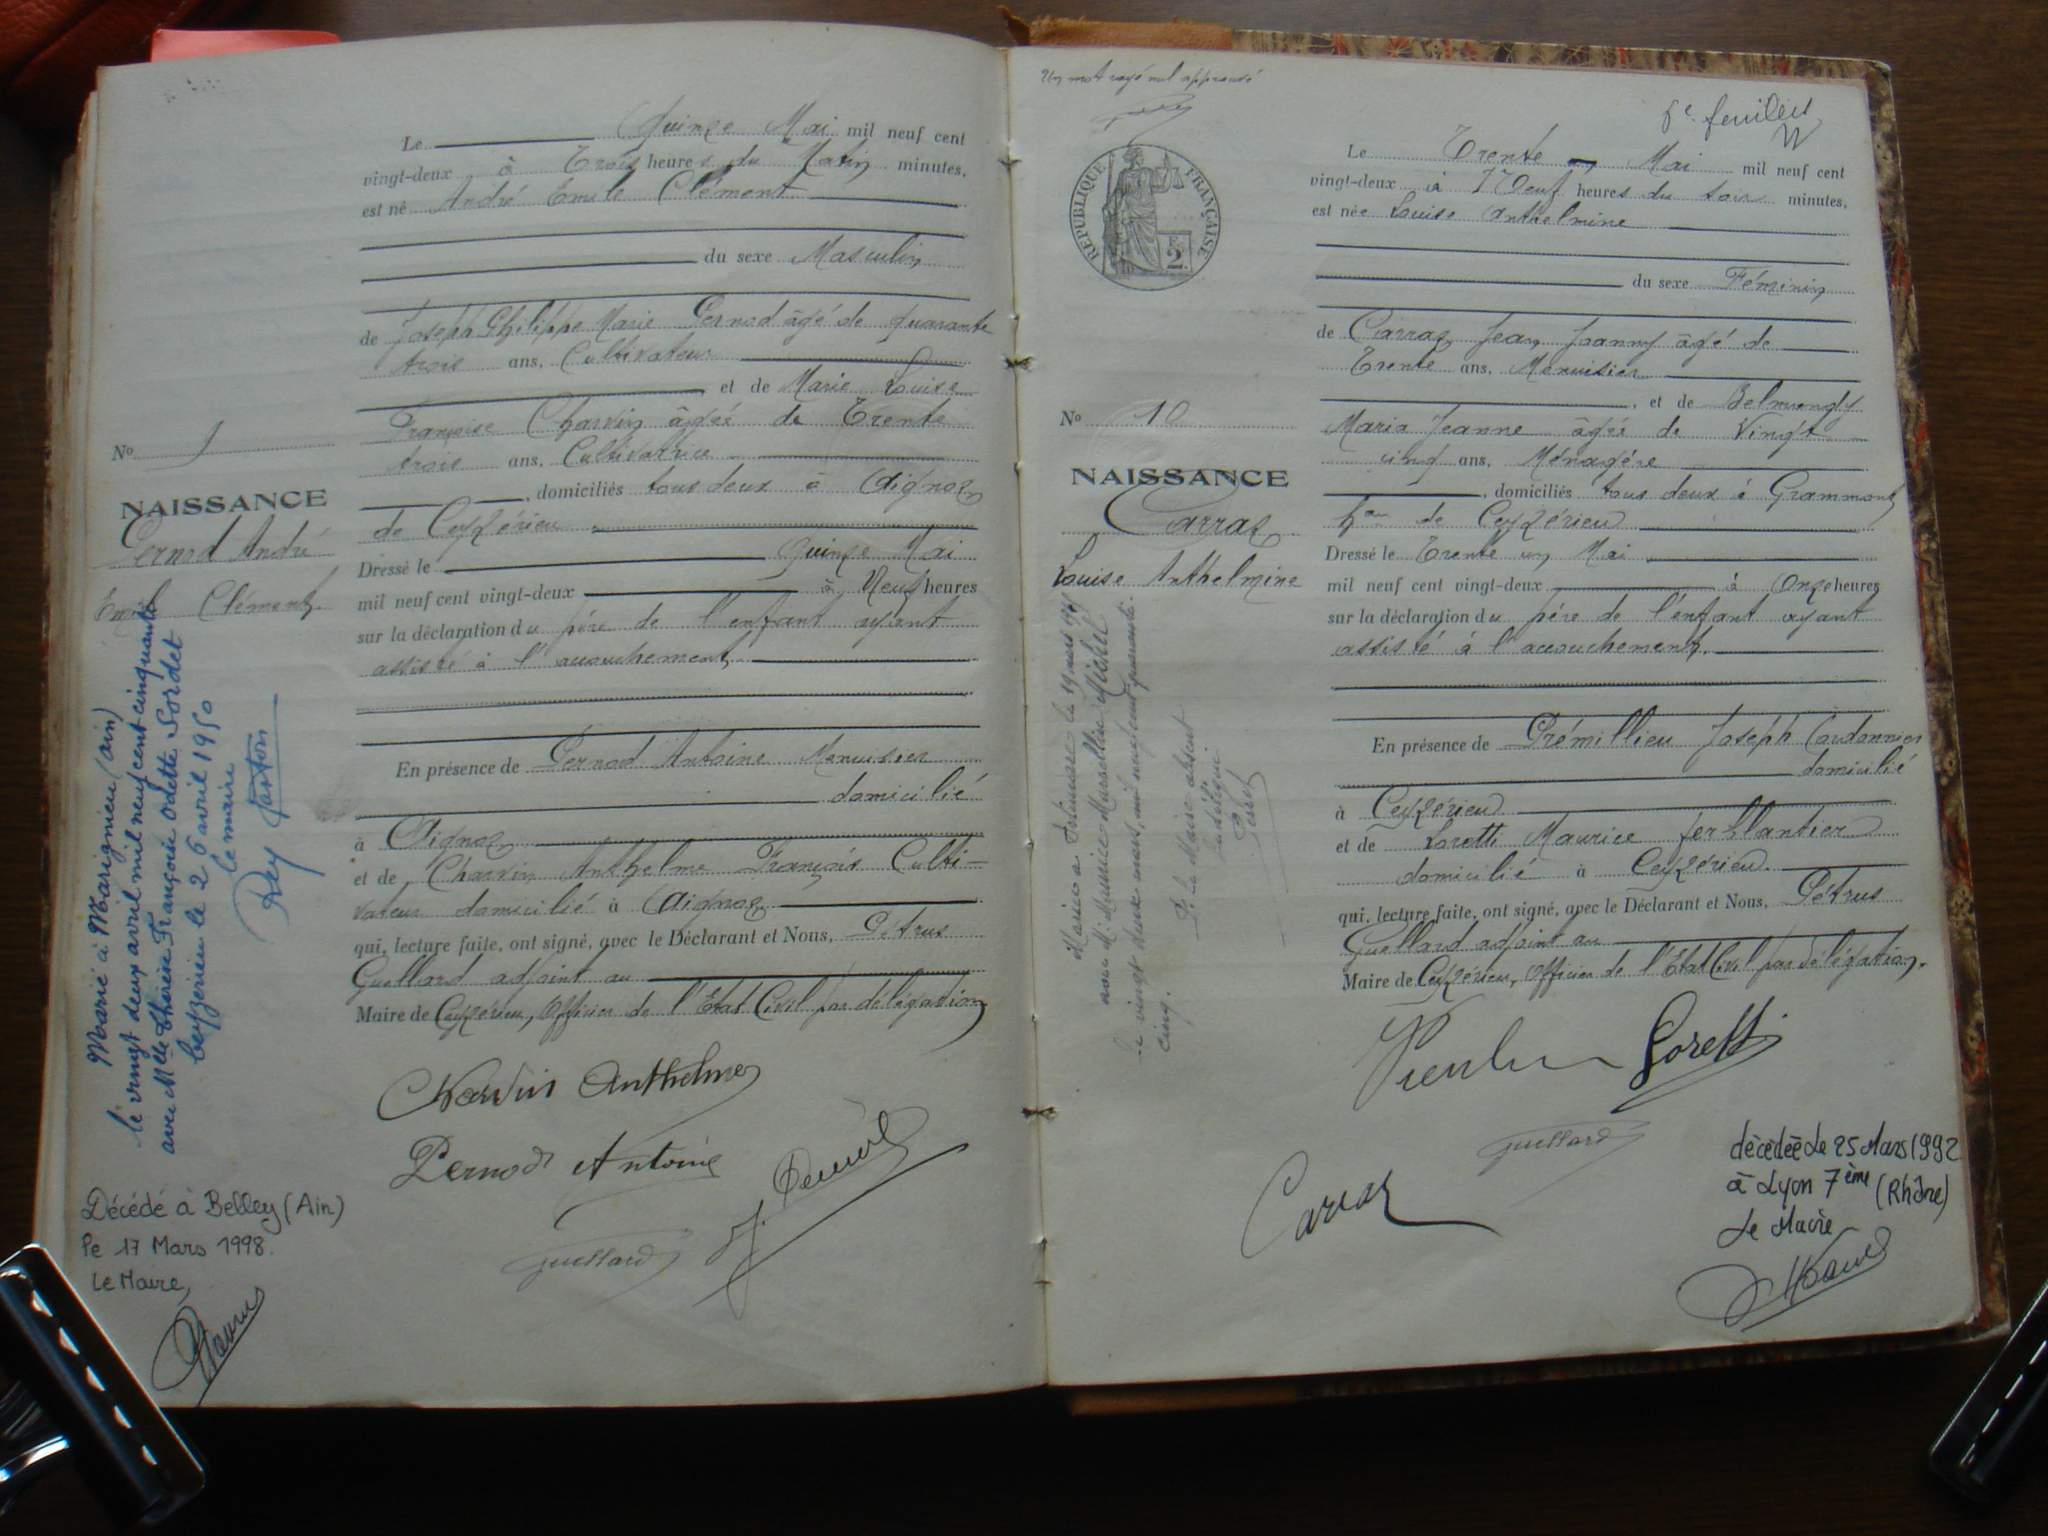 Le Quinze Mai mil neuf cent
vingt-deux à Trois heures du Matin minutes,
est né André Emile Clément
du sexe Masculin
de Joseph Philippe Marie Pernod âgé de quarante
trois ans, Cultivateur
et de Marie Louise
Françoise Charvin âgée de Trente
trois ans, Cultivatrice
, domiciliés tous deux à Aignoz
de Ceyzérieu
Dressé le Quinze Mai
mil neuf cent vingt-deux à Neuf heures
sur la déclaration du père de l'enfant ayant
assisté à l'accouchement.
En présence de Pernod Antoine Menuisier
domicilié
à Aignoz
et de Charvin Anthelme François Culti-
vateur domicilié à Aignoz
qui, lecture faite, ont signé, avec le Déclarant et Nous, Pétrus
Guellard adjoint au
Maire de Ceyzérieu, Officier de l'Etat Civil par délégation
Charvin Anthelme
Pernod Antoine
Guellard
No
NAISSANCE
Pernod André
Emile Clément
Marié à Marignieu (ain)
le vingt deux avril mil neuf cent cinquante
avec Melle Thérèse Françoise Odette Sordet
Ceyzérieu le 26 avril 1950
le maire
Décédé à Belley (Ain)
le 17 Mars 1998.
Le Maire,
Un mot rayé nul approuvé
RÉPUBLIQUE FRANÇAISE
2
feuillet
Le Trente Mai mil neuf cent
vingt-deux à Neuf heures du soir minutes,
est née Louise Anthelmine
du sexe Féminin
de Carraz Jean Joanny âgé de
Trente ans, Menuisier
, et de Belmongy
Maria Jeanne âgée de Vingt
cinq ans, Ménagère
, domiciliés tous deux à Grammont
hau de Ceyzérieu
Dressé le Trente un Mai
mil neuf cent vingt-deux à Onze heures
sur la déclaration du père de l'enfant ayant
assisté à l'accouchement.
En présence de Prémillieu Joseph Cordonnier
domicilié
à Ceyzérieu
et de Loretti Maurice ferblantier
domicilié à Ceyzérieu.
qui, lecture faite, ont signé, avec le Déclarant et Nous, Pétrus
Guellard adjoint au
Maire de Ceyzérieu, Officier de l'Etat Civil par délégation.
Loretti
Guellard
Carraz
No 10
NAISSANCE
Carraz
Louise Anthelmine
le vingt deux mars, mil neuf cent quarante
cinq.
P. Le Maire absent
décédée le 25 Mars 1992
à Lyon 7ème (Rhône)
Le Maire